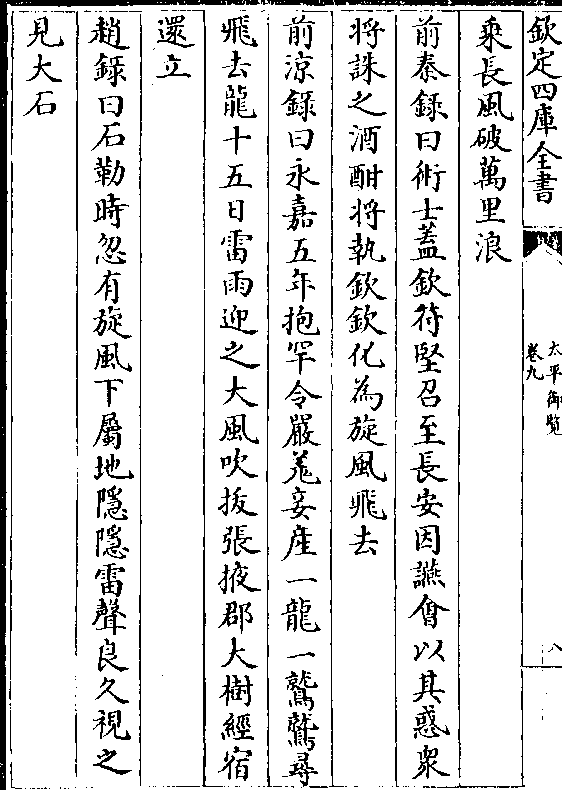 欽定四庫全書
太平御覧
卷九
八
乘長風破萬里浪
前秦録曰術士蓋欽符堅召至長安因讌會以其惑衆
将誅之酒酣将執欽欽化為旋風飛去
前涼録曰永嘉五年抱罕令嚴羗妾産一龍一鷲鷲尋
飛去龍十五日雷雨迎之大風吹拔張掖郡大樹經宿
還立
趙録曰石勒時忽有旋風下屬地隱隱雷聲良久視之
見大石